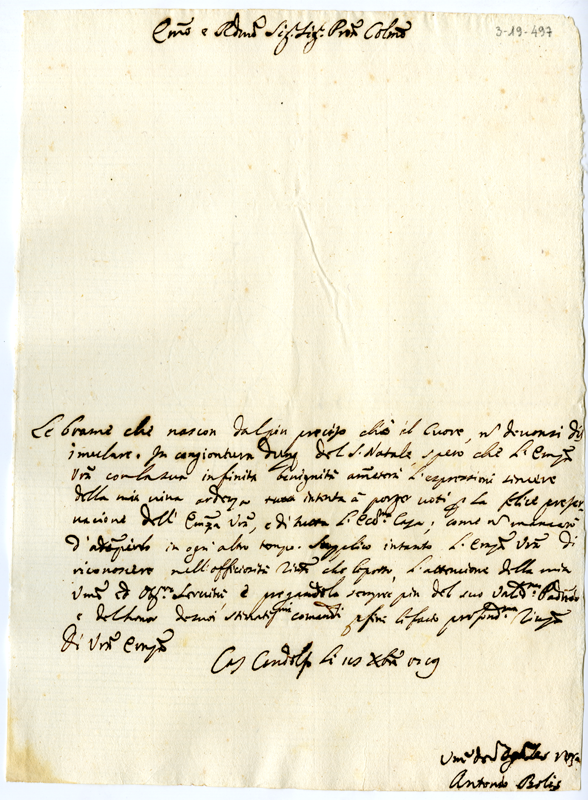 3-19-497
Emo e Rdmo Sig: Sig: Pron Colmo
Le brame che nascon dal piu preciso che è il Cuore, nō devonsi dis
simulare. In congiontura dunq del S. Natale spero che L'Emza
Vra con la sua infinita benignità ametterà l'espressioni sincere
della mia viva ardezza tutta intenta à porger voti p la felice preser
vazione dell'Emza Vra, e di tutta l'Ecc.ma Casa; come nō mancarò
d'adempierlo in ogni altro tempo. Supplico intanto L'Emza Vra di
riconoscere nell'officiosità che le porto, l'attenzione della mia
Uma ed Obl.ma Servitù è pregandola sempre piu del suo Valid.mo Padrocio
e dell'honor de suoi stimatissmi comandi p fine le faccio profondma
Di Vra Emza
Cas Gandolfo li Xbre
Umo
Antonio Bolis